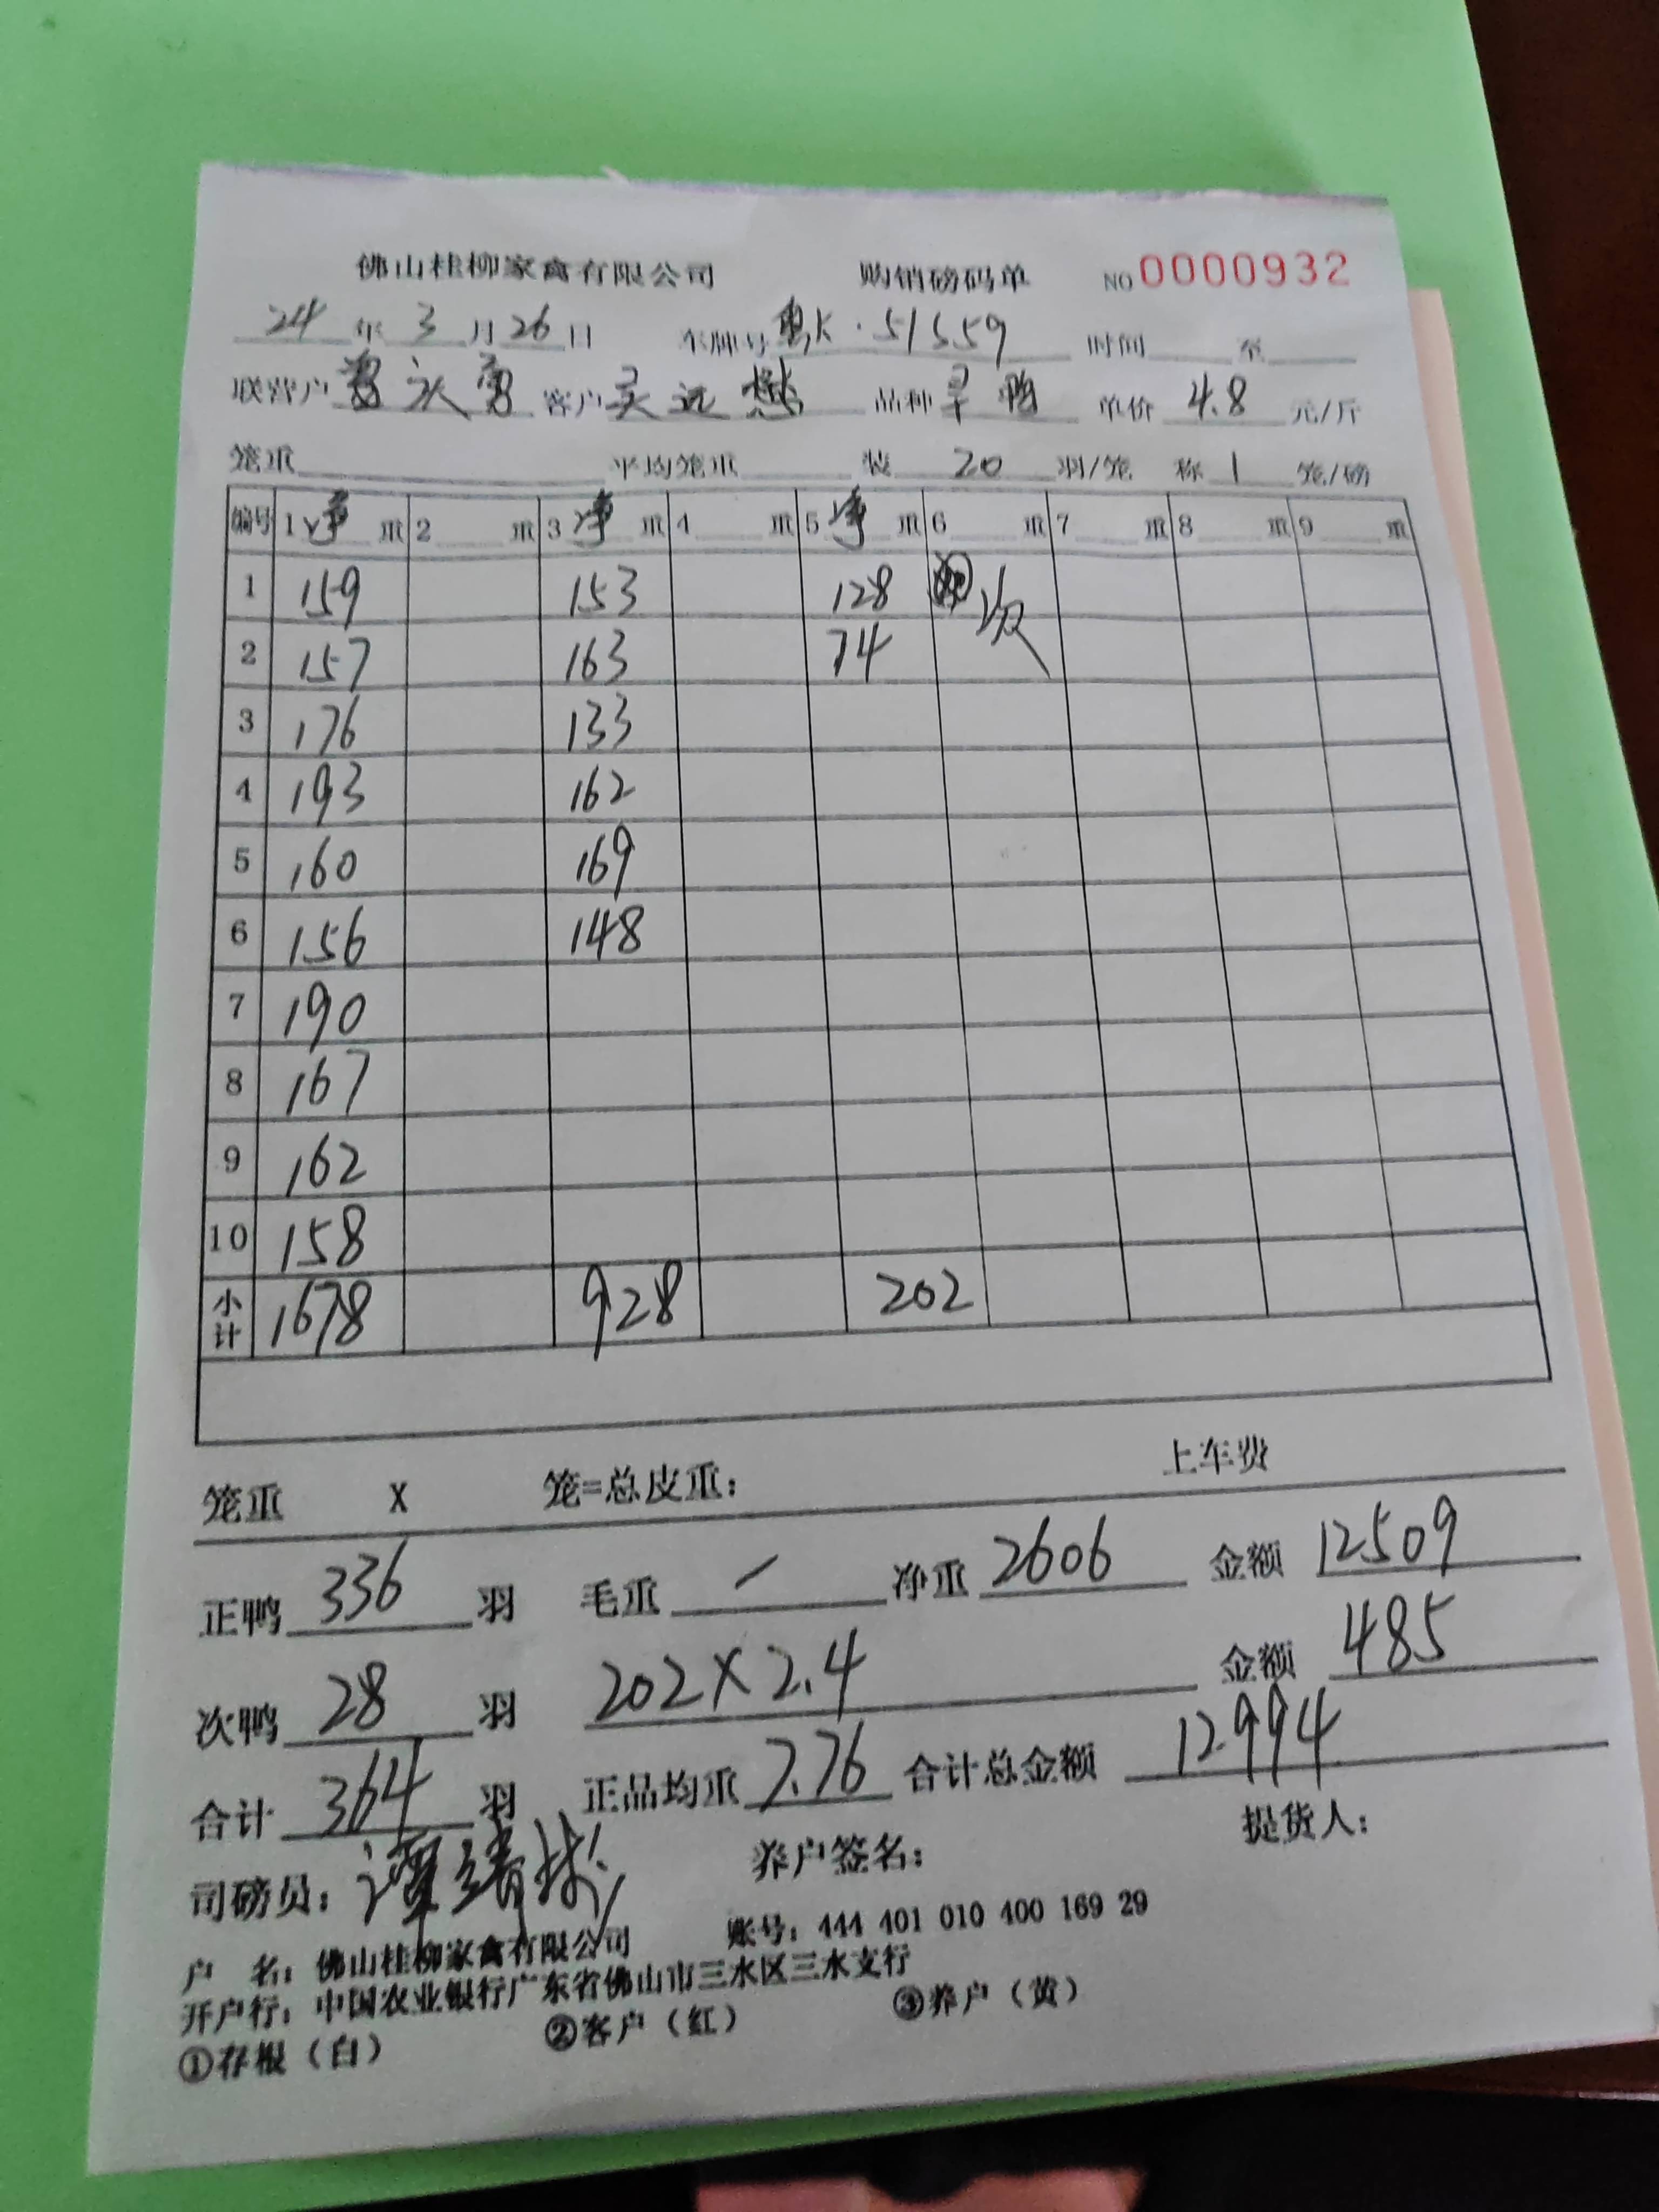 佛山桂柳家禽有限公司 购销磅码单 NO 0000932
24 年 3 月 26 日 车牌号 51559 时间 至
联营户 客户 吴远 品种 旱鸭 单价 4.8 元/斤
笼重 平均笼重 装 20 羽/笼 称 1 笼/磅
编号 1 净 重 2 重 3 净 重 4 重 5 净 重 6 重 7 重 8 重 9 重
1 159 153 128 次
2 157 163 74
3 176 133
4 193 162
5 160 169
6 156 148
7 190
8 167
9 162
10 158
小计 1678 928 202
笼重 X 笼=总皮重: 上车费
正鸭 336 羽 毛重 / 净重 2606 金额 12509
次鸭 28 羽 202×2.4 金额 485
合计 364 羽 正品均重 7.76 合计总金额 12994
司磅员: 谭 养户签名: 提货人:
户 名: 佛山桂柳家禽有限公司 账号: 444 401 010 400 169 29
开户行: 中国农业银行广东省佛山市三水区三水支行
①存根(白) ②客户(红) ③养户(黄)